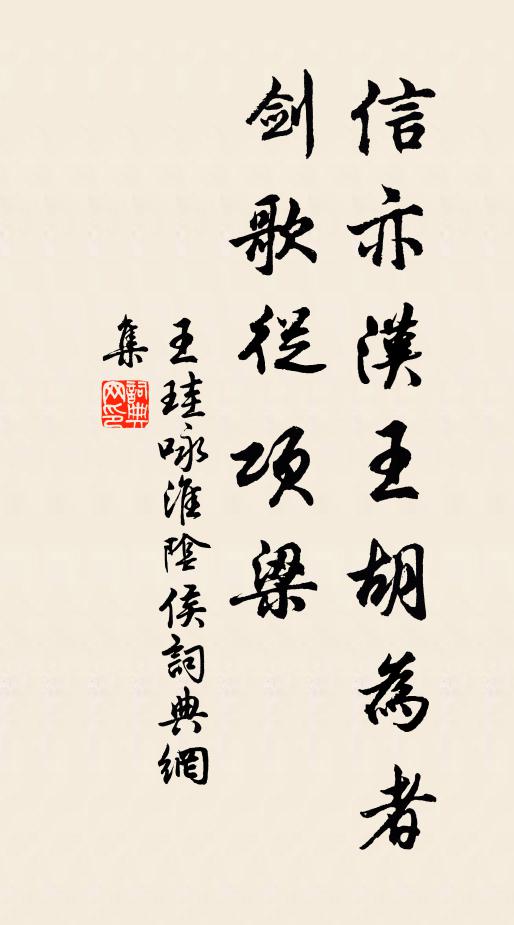 信亦漢王胡為者
劍歌從項梁
王珪咏淮陰侯詞典網
集
詞典
网印